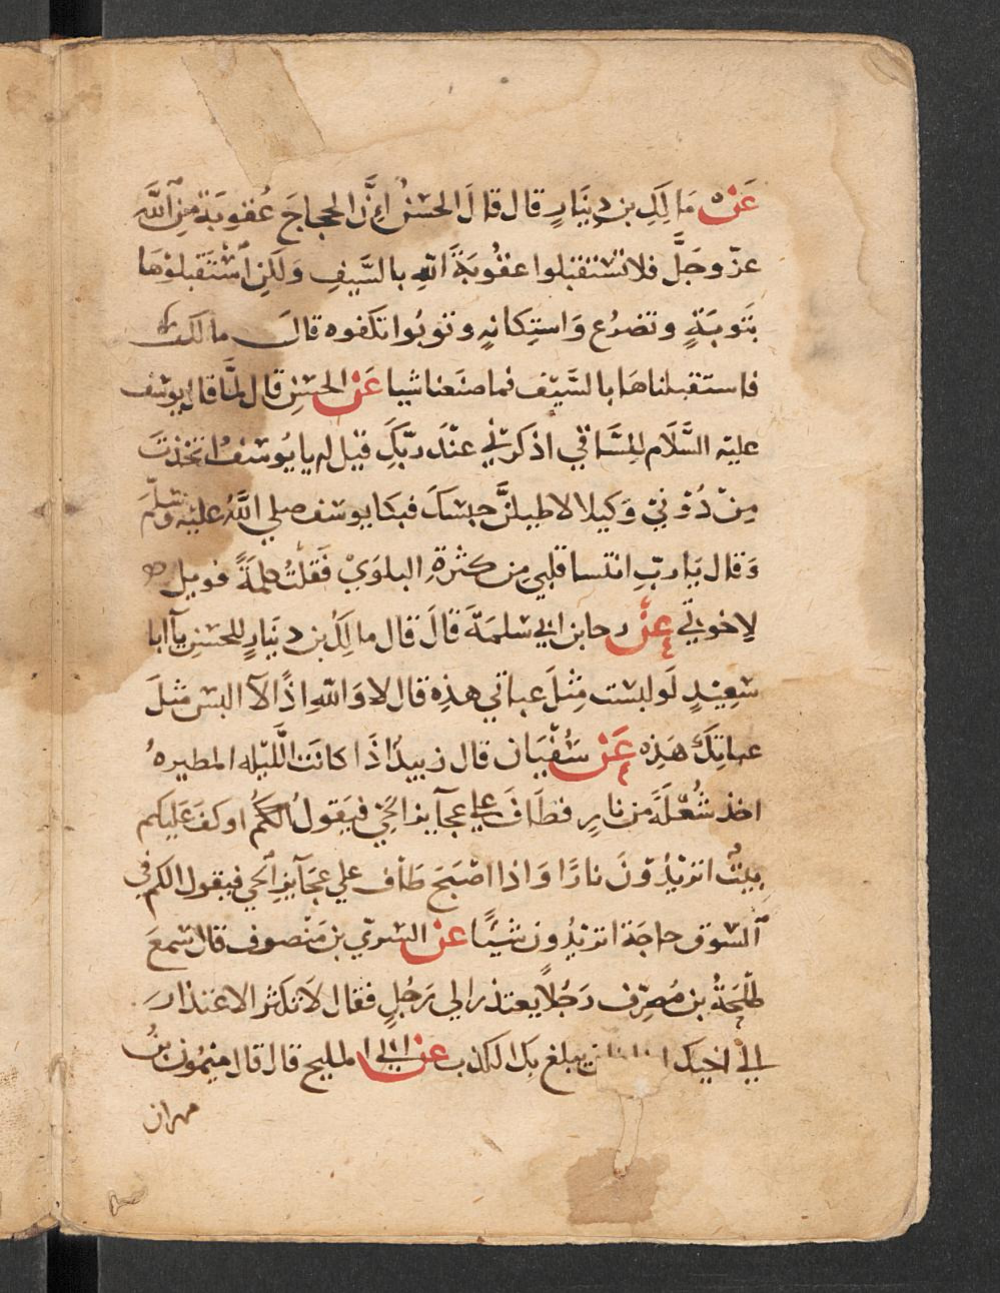 عَنْ مَالِكِ بن دِينَارٍ قال قالَ الحسَنُ اِنَّ الحجاجَ عُقوبَة مِنَ اللَّه
عزّ وجَلَّ فلا تستقبلوا عقُوبَةَ اللهِ بالسَّيفِ وَلكِنِ اسْتَقبلوْهَا
بتَوبَةٍ وتضرُع وَاستِكانهٍ وتوبُوا تكفوه قالَ مالك
فاستقبلناهَا بالسَّيْف فما صنَعنا شيا عَن الحسَنِ قال لمَّا قال يوسف
عليْه السَّلَام للِسَّاقي اذكرْني عنْدَ ربّكَ قيْل له يا يُوسُفُ اتخذتَ
مِنْ دُوْني وَكيلا لاطيلنَّ حبْسَكَ فبكا يوسَف صلي اللَّهُ عليْه وَسَلّمَ
وَقال يَا ربِّ انتسا قلبي مِن كثرةِ البلوَيْ فَقلتُ كلمَةً فويل
لاخوتي عَنْ رجا بن ابي سلمَةَ قالَ قال مالِكُ بن دِينَارٍ للحسَنِ يآ ابا
سَعِيْدٍ لَو لبسْت مثْلَ عباتي هذِه قال لا وَاللهِ اذًا لآ البسُ مثلَ
عباتِكَ هَذِه عَنْ سُفْيَان قال زبيدُ اذَا كانَت اللَّيْله المطيرهُ
اخذ شُعْلَةً من نارٍ فطَافَ علي عجآيز الحَيِّ فيَقولُ الكَمُ اوكفَ عَليكم
بيتٌ اترنيْدُوْنَ نارًا وَاذا اصْبَحَ طَاْف علي عجَآيزِ الحي فيقول الكم في
السّوق حاجَة اتريْدُون شيْئًا عَنْ السَّريّ بن مَنْصوف قال سمعَ
طلْحَةُ بن مُصرّف رَجُلاً يعتذر الي رَجُلٍ فقال لاتكثر الاعتذارَ
الي اخيك يبلغ بك الكذب عن ابي المليح قال قال ميْمُون بنُ
مهران